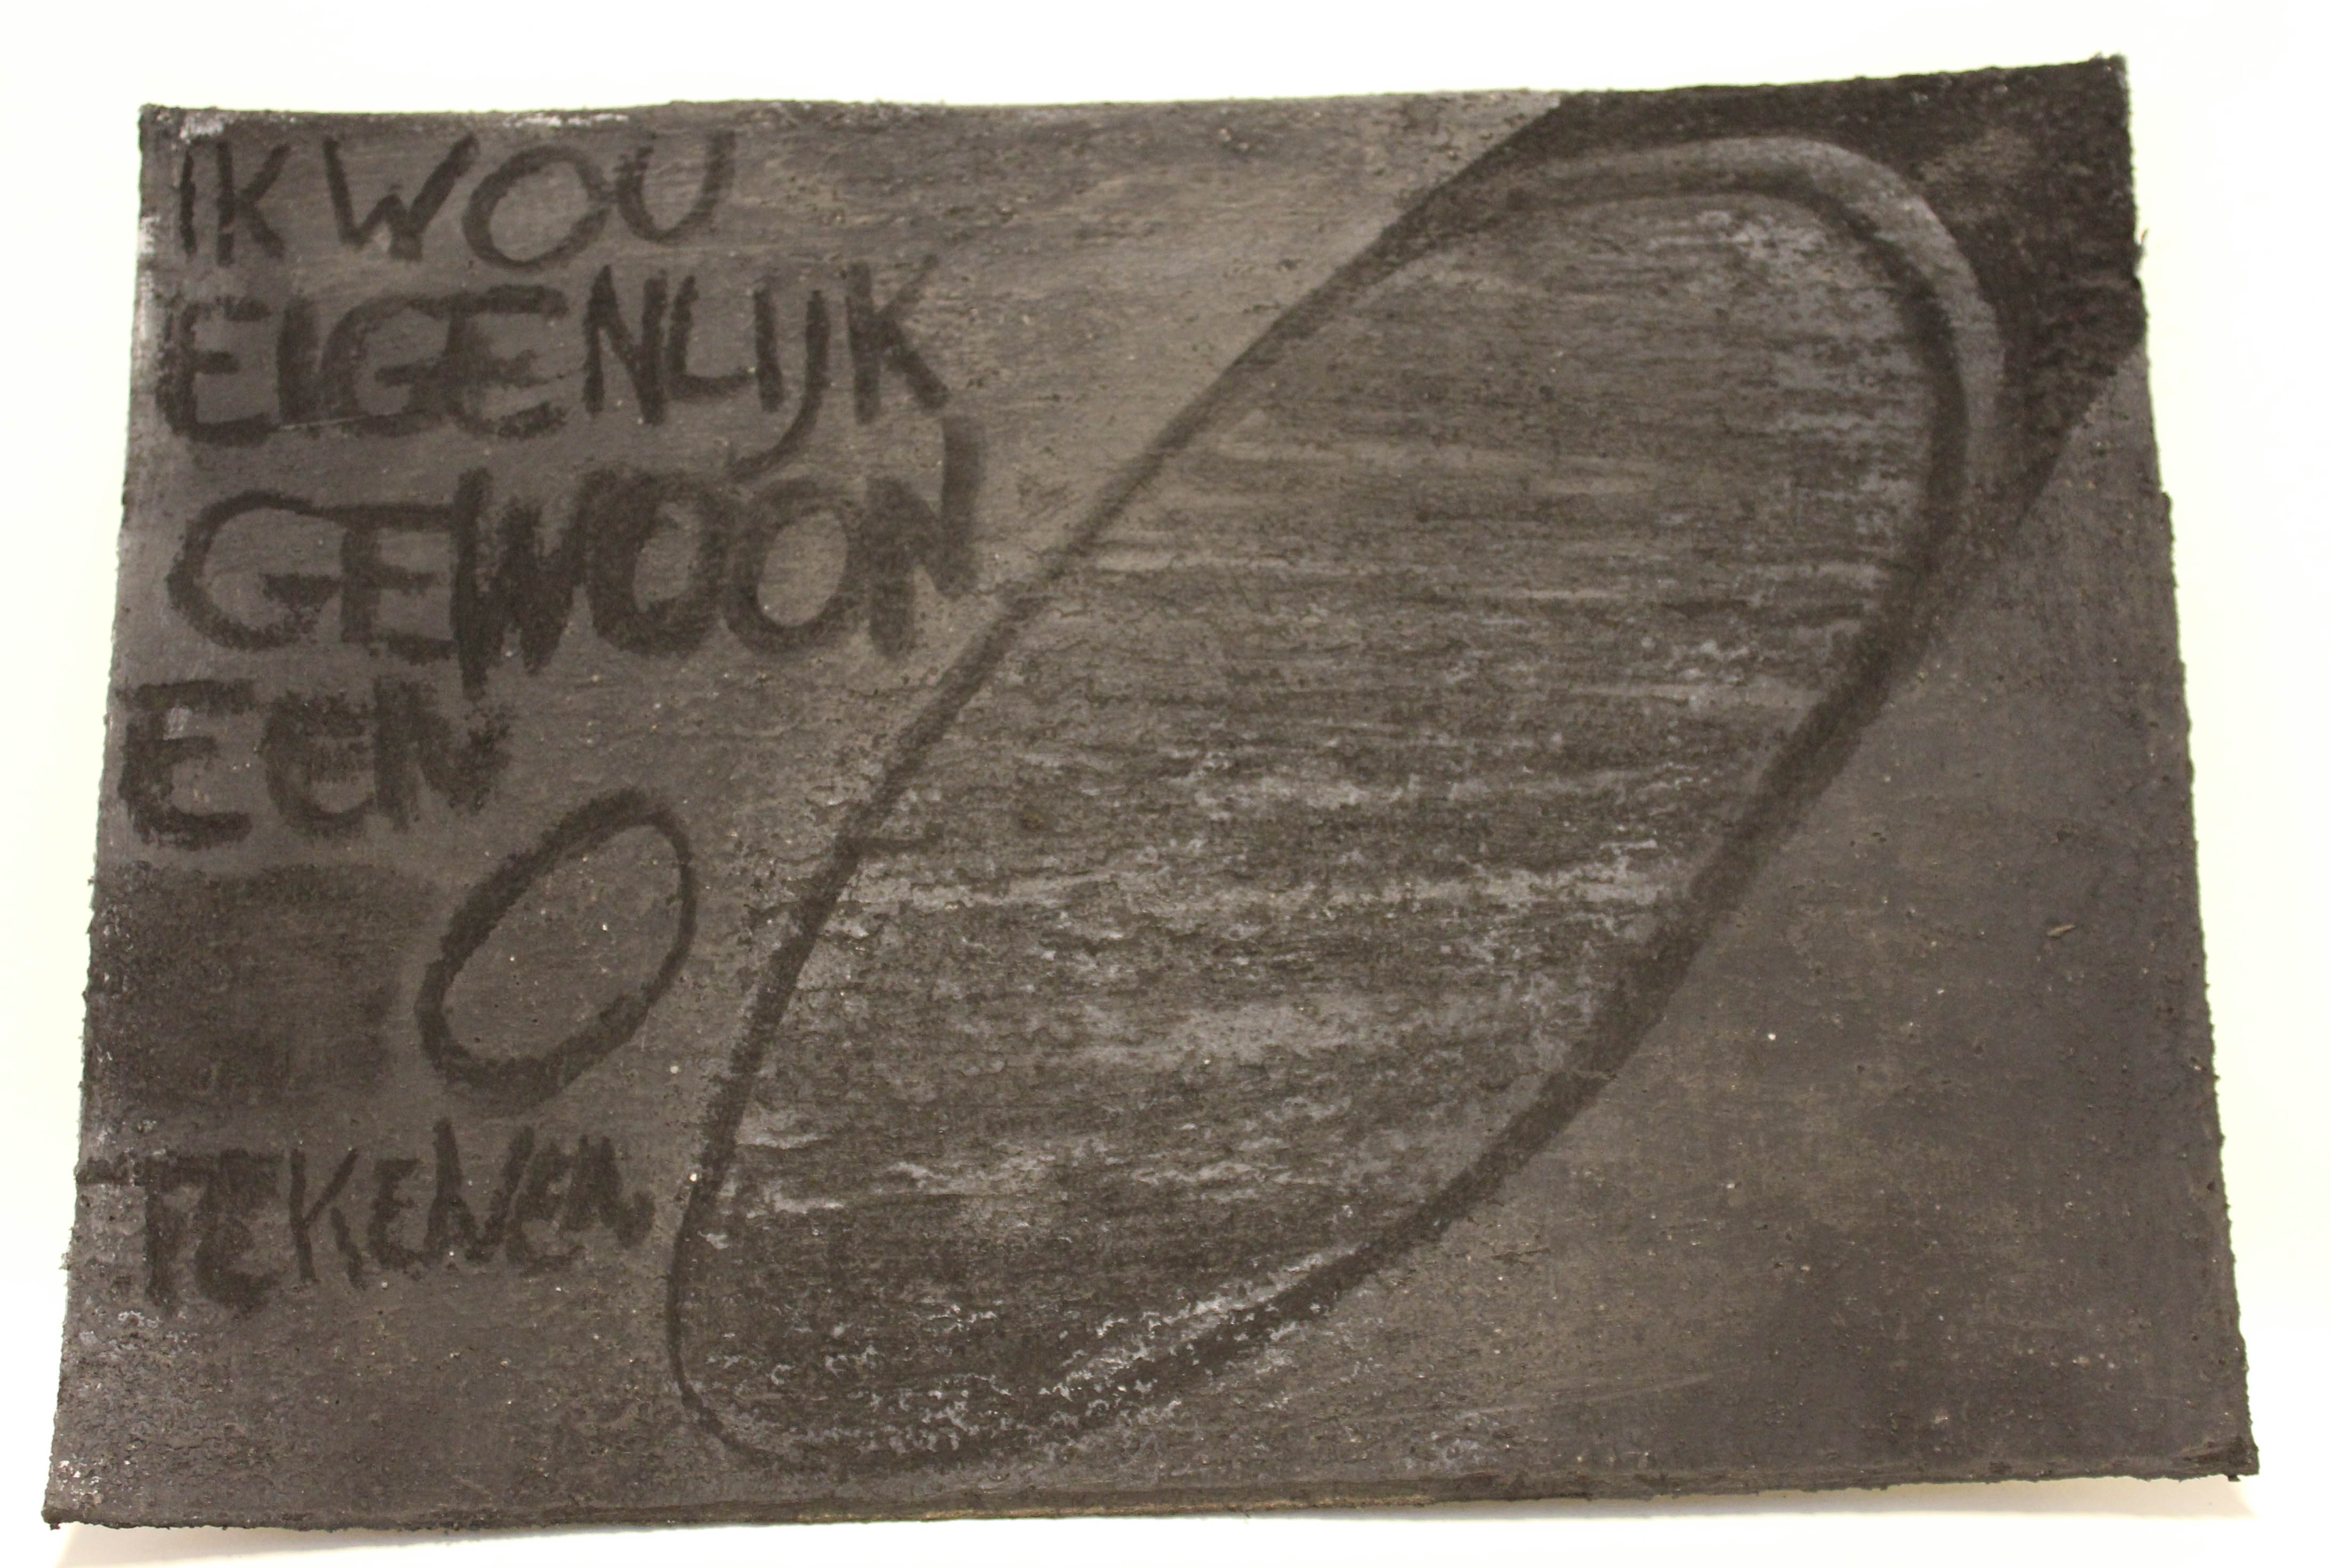 IK WOU
EIGENLIJK
GEWOON
EEN
O
TEKENEN